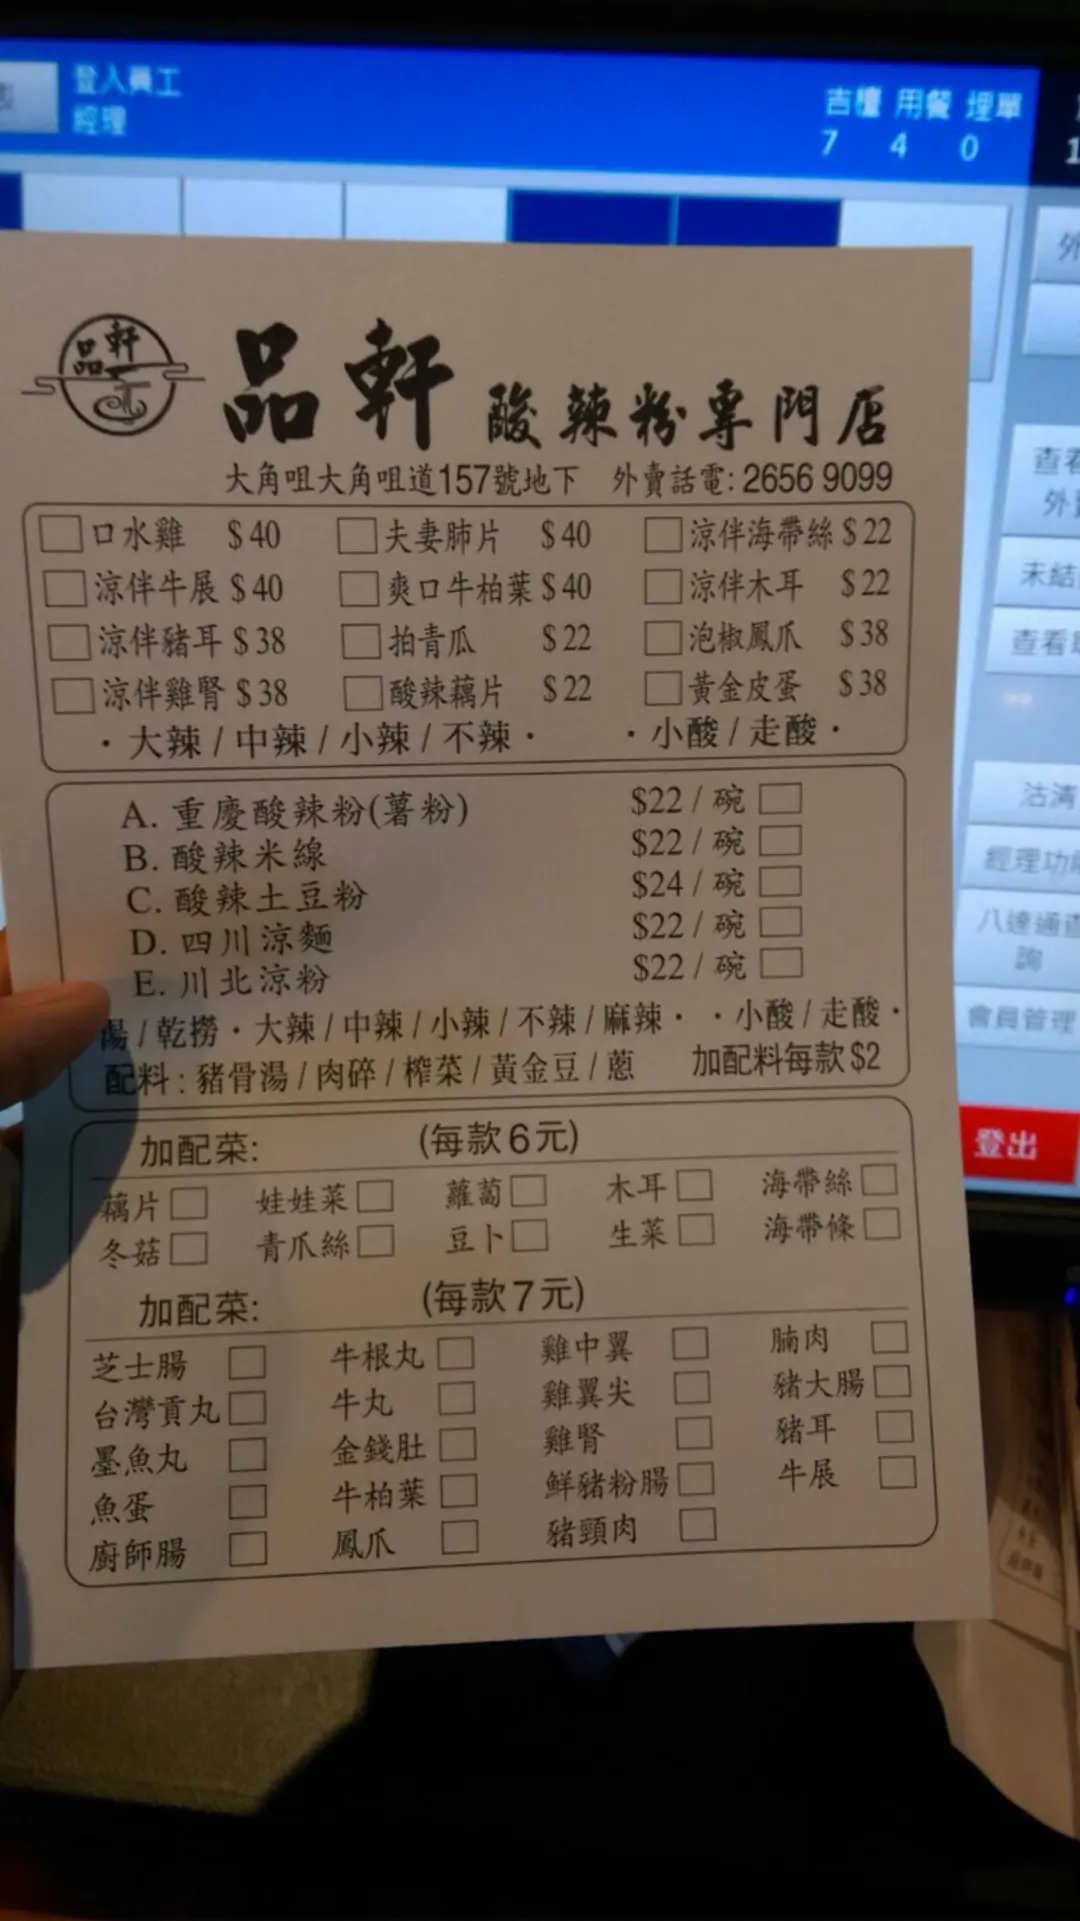 登入員工
經理
吉檯 用餐 埋單
7 4 0
品軒
品軒 酸辣粉專門店
大角咀大角咀道157號地下 外賣話電: 2656 9099
口水雞 $40 夫妻肺片 $40 涼伴海帶絲 $22
涼伴牛展 $40 爽口牛柏葉 $40 涼伴木耳 $22
涼伴豬耳 $38 拍青瓜 $22 泡椒鳳爪 $38
涼伴雞腎 $38 酸辣藕片 $22 黃金皮蛋 $38
·大辣/中辣/小辣/不辣· ·小酸/走酸·
A. 重慶酸辣粉(薯粉) $22 / 碗
B. 酸辣米線 $22 / 碗
C. 酸辣土豆粉 $24 / 碗
D. 四川涼麵 $22 / 碗
E. 川北涼粉 $22 / 碗
湯/乾撈·大辣/中辣/小辣/不辣/麻辣· ·小酸/走酸·
配料:豬骨湯/肉碎/榨菜/黃金豆/蔥 加配料每款$2
加配菜: (每款6元)
藕片 娃娃菜 蘿蔔 木耳 海帶絲
冬菇 青爪絲 豆卜 生菜 海帶條
加配菜: (每款7元)
芝士腸 牛根丸 雞中翼 腩肉
台灣貢丸 牛丸 雞翼尖 豬大腸
墨魚丸 金錢肚 雞腎 豬耳
魚蛋 牛柏葉 鮮豬粉腸 牛展
廚師腸 鳳爪 豬頸肉
外
查看
外賣
未結
查看
沽清
經理功能
八達通查
詢
會員管理
登出